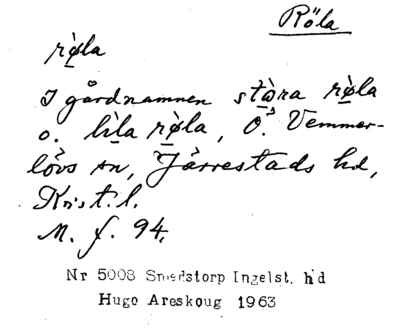 Röla
rø̀la
I gårdnamnen stòra rø̀la
o. lìla rø̀la, Ö. Vemmer-
lövs sn, Järrestads hd,
Krist. l.
M. f. 94.
Nr 5008 Smedstorp Ingelst. hd
Hugo Areskoug 1963